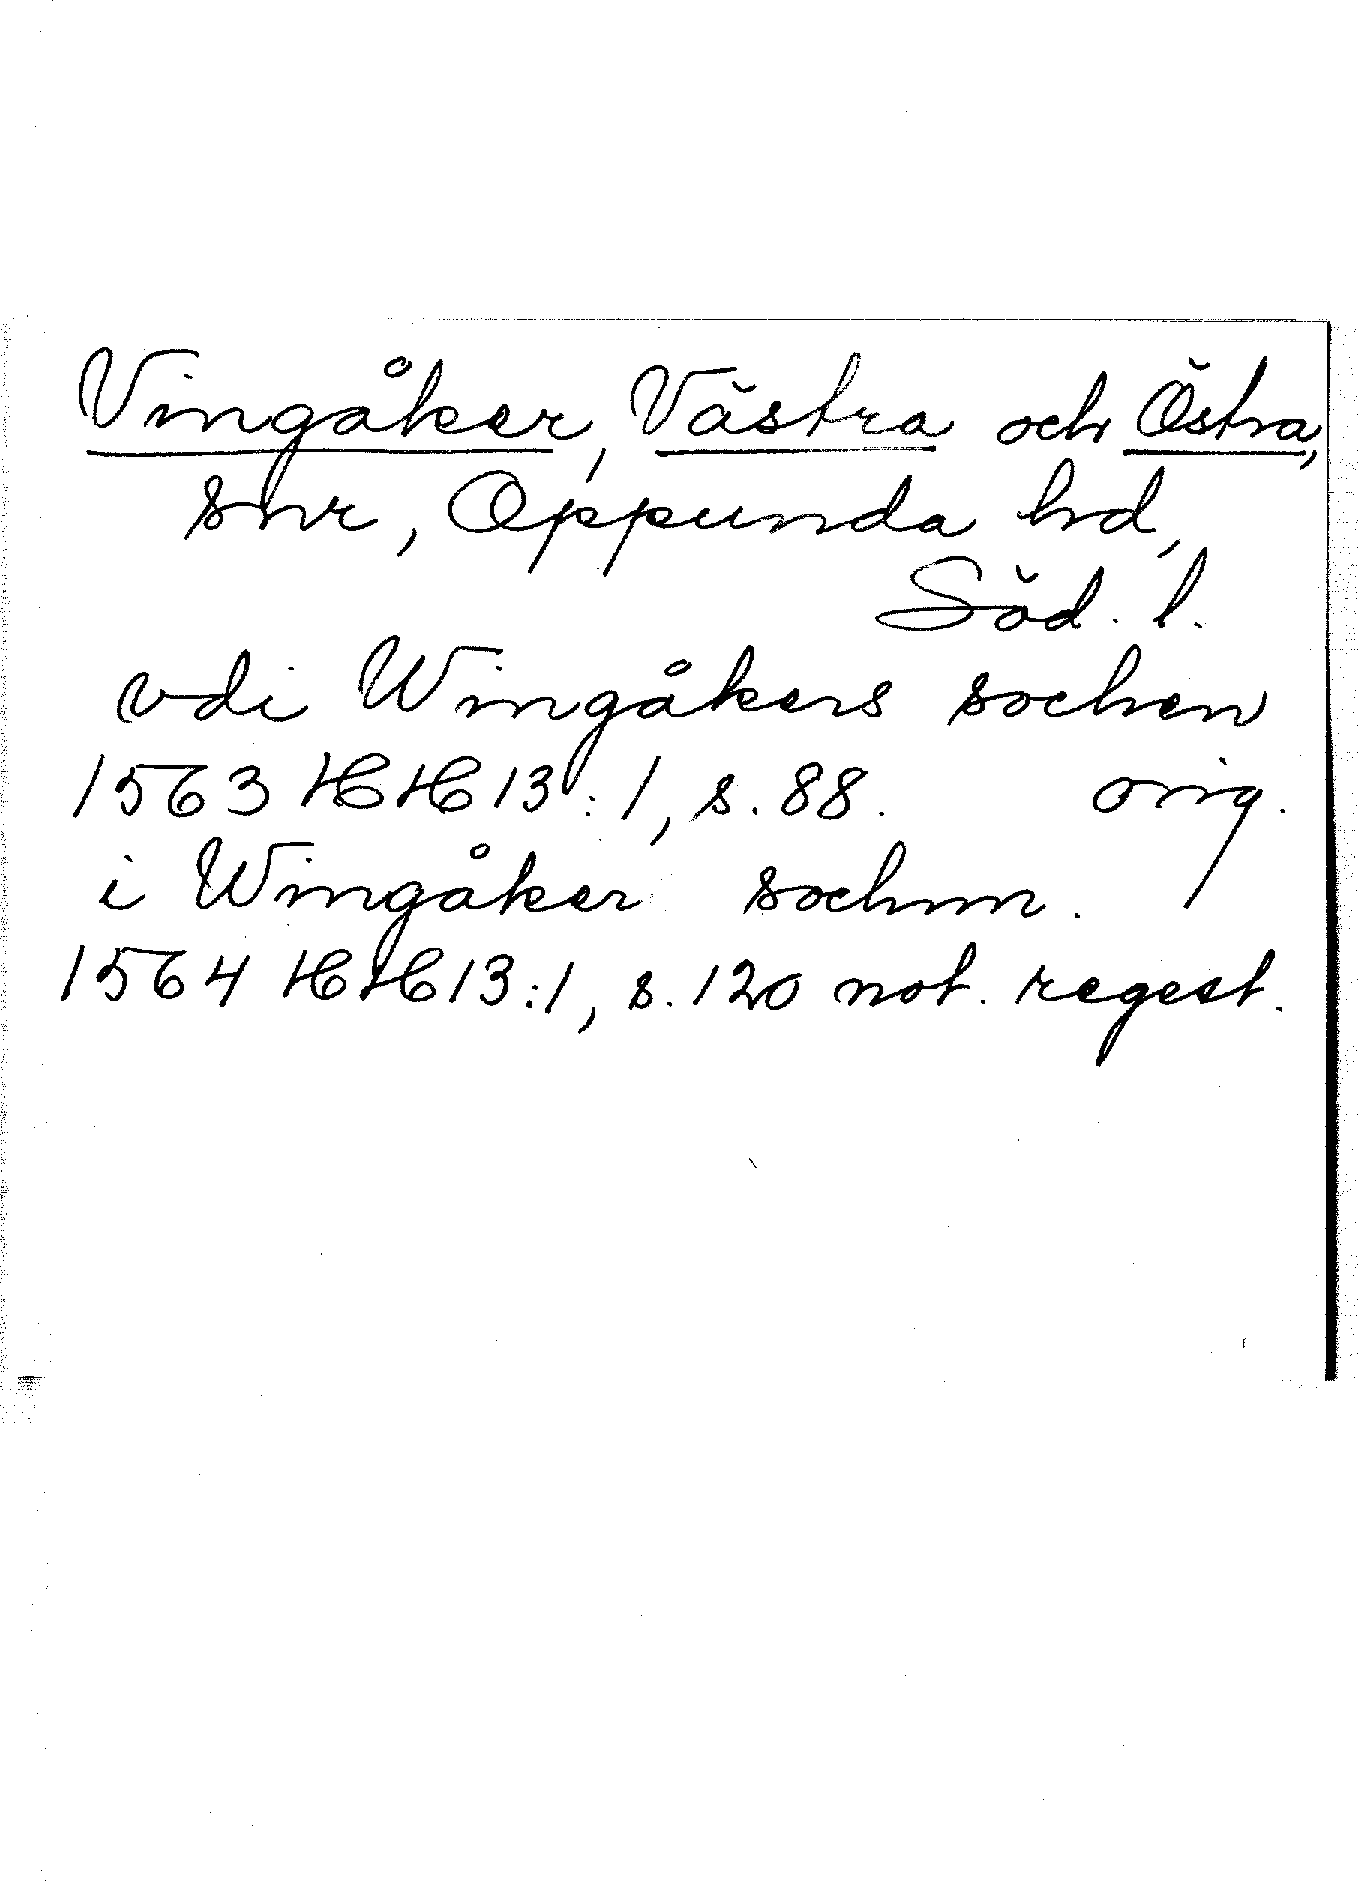 Vingåker, Västra och Östra,
snr, Oppunda hd,
Söd. l.
vdi Wingåkers sochen
1563 HH 13:1, s. 88. orig.
i Wingåker sochnn.
1564 HH 13:1, s. 120 not. regest.